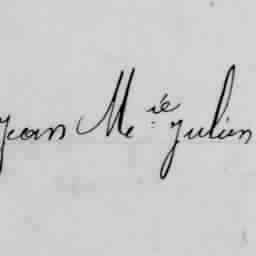 Jean M.ie Julien